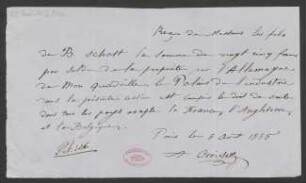 Reçu de Messieurs les fils
de B Schott la somme de vingt cinq francs
pour solde de la propriété sur l'Allemagne
de Mon quadrille le Palais de l'industrie
sous la présente et compris le droit de vente
dans tous les pays excepté la France, l'Angleterre
et la Belgique
Paris le 5 Aout 1855